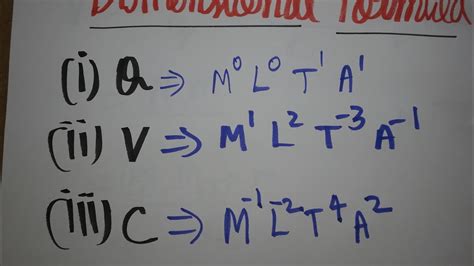 Dimensional Formula
(i) Q ⇒ M⁰ L⁰ T¹ A¹
(ii) V ⇒ M¹ L² T⁻³ A⁻¹
(iii) C ⇒ M⁻¹ L⁻² T⁴ A²